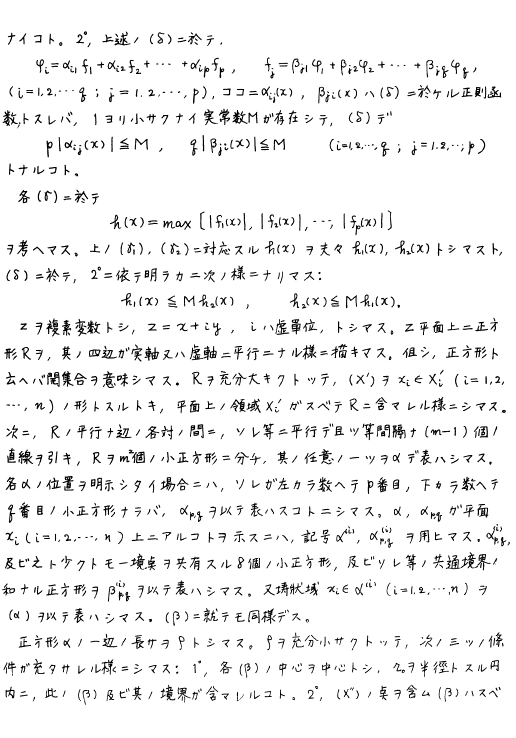 ナイコト。2°, 上述ノ (δ) ニ於テ,
φᵢ = αᵢ₁f₁ + αᵢ₂f₂ + ⋯ + αᵢₚfₚ , fⱼ = βⱼ₁φ₁ + βⱼ₂φ₂ + ⋯ + βⱼqφq ,
(i = 1, 2, ⋯ q ; j = 1, 2, ⋯, p), ココニ αᵢⱼ(x) , βⱼᵢ(x) ハ (δ) ニ於ケル正則函
数, トスレバ, 1ヨリ小サクナイ実常数Mガ存在シテ, (δ) デ
p|αᵢⱼ(x)| ≦ M , q|βⱼᵢ(x)| ≦ M (i=1,2,⋯,q ; j=1,2,⋯,p)
トナルコト。
各 (δ') ニ於テ
h(x) = max [|f₁(x)|, |f₂(x)|, ⋯, |fₚ(x)|]
ヲ考ヘマス。上ノ (δ₁), (δ₂) ニ対応スル h(x) ヲ夫々 h₁(x), h₂(x) トシマスト,
(δ) ニ於テ, 2°ニ依テ明ラカニ次ノ様ニナリマス:
h₁(x) ≦ M h₂(x) , h₂(x) ≦ M h₁(x).
z ヲ複素変数トシ, z = x + iy , i ハ虚單位, トシマス。z平面上ニ正方
形Rヲ, 其ノ四辺ガ実軸又ハ虚軸ニ平行ニナル様ニ描キマス。但シ, 正方形ト
云ヘバ閉集合ヲ意味シマス。Rヲ充分大キクトッテ, (X') ヲ xᵢ ∈ Xᵢ' (i = 1, 2,
⋯, n) ノ形トスルトキ, 平面上ノ領域 Xᵢ' ガスベテ R ニ含マレル様ニシマス。
次ニ, Rノ平行ナ辺ノ各対ノ間ニ, ソレ等ニ平行デ且ツ等間隔ナ (m−1) 個ノ
直線ヲ引キ, Rヲm²個ノ小正方形ニ分チ, 其ノ任意ノ一ツヲ α デ表ハシマス。
各αノ位置ヲ明示シタイ場合ニハ, ソレガ左カラ数ヘテ p番目, 下カラ数ヘテ
q番目ノ小正方形ナラバ, αₚ,q ヲ以テ表ハスコトニシマス。α, αₚ,q ガ平面
xᵢ (i = 1, 2, ⋯, n) 上ニアルコトヲ示スニハ, 記号 α⁽ⁱ⁾, αₚ,q⁽ⁱ⁾ ヲ用ヒマス。αₚ,q⁽ⁱ⁾,
及ビ之ト少クトモ一境点ヲ共有スル8個ノ小正方形, 及ビソレ等ノ共通境界ノ
和ナル正方形ヲ βₚ,q⁽ⁱ⁾ ヲ以テ表ハシマス。又塲状域 xᵢ ∈ α⁽ⁱ⁾ (i = 1, 2, ⋯, n) ヲ
(α) ヲ以テ表ハシマス。(β) ニ就テモ同様デス。
正方形αノ一辺ノ長サヲρトシマス。ρヲ充分小サクトッテ, 次ノ三ツノ條
件ガ充タサレル様ニシマス: 1°, 各 (β) ノ中心ヲ中心トシ, r₀ヲ半徑トスル円
内ニ, 此ノ (β) 及ビ其ノ境界ガ含マレルコト。2°, (X'') ノ点ヲ含ム (β) ハスベ